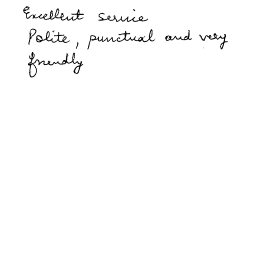 Excellent service
Polite, punctual and very
friendly